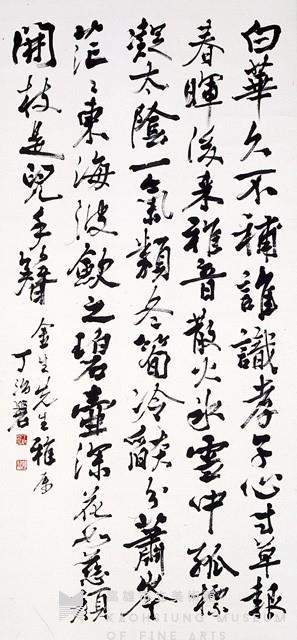 白華久不補誰識孝子心寸草報
春暉後来雅音散火氷雪中孤標
太陰一氣類冬筍冷艷分蕭岑
茫々東海波飲之碧壺深花如慈顏
開枝是兒手簪
金生先生雅屬
丁治磐
高雄市立美術館
KAOHSIUNG MUSEUM
OF FINE ARTS